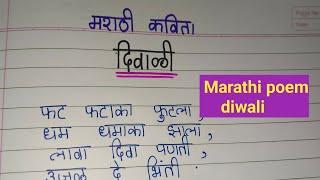 मराठी कविता
दिवाळी
Marathi poem
diwali
फट फटाका फुटला,
धम धमाका झाला,
लावा दिवा पणती,
उजळू दे भिंती.